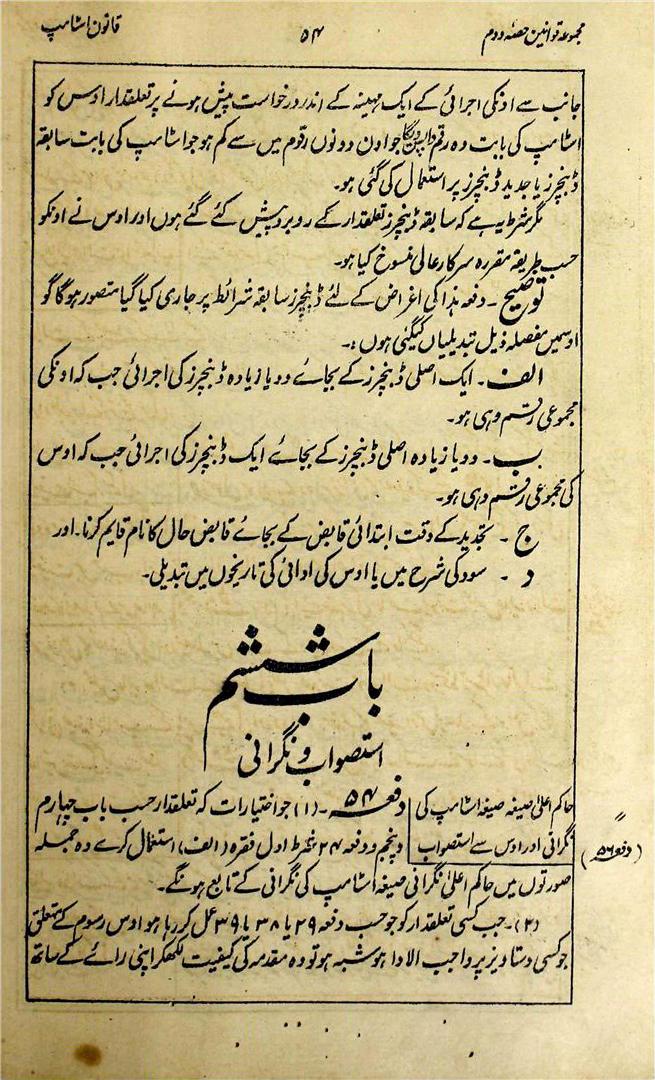 مجموعہ قوانین حصہ دوم
۵۴
قانون اسٹامپ
جانب سے اونکی اجرائی کے ایک مہینہ کے اندر درخواست پیش ہونے پر تعلقدار اوس کو
اسٹامپ کی بابت وہ رقم واپس دیگا جو اون دونوں رقوم میں سے کم ہو جو اسٹامپ کی بابت سابقہ
ڈبنچرز یا جدید ڈبنچرز پر استعمال کی گئی ہو۔
مگر شرط یہ ہے کہ سابقہ ڈبنچرز تعلقدار کے روبرو پیش کئے گئے ہوں اور اوس نے اونکو
حسب طریقہ مقررہ سرکار عالی منسوخ کیا ہو۔
توضیح ۔ دفعہ ہذا کی اغراض کے لئے ڈبنچرز سابقہ شرائط پر جاری کیا گیا متصور ہوگا گو
اوسمیں مفصلہ ذیل تبدیلیاں کیگئی ہوں :۔
الف ۔ ایک اصلی ڈبنچرز کے بجائے دو یا زیادہ ڈبنچرز کی اجرائی جب کہ اونکی
مجموعی رقم وہی ہو۔
ب ۔ دو یا زیادہ اصلی ڈبنچرز کے بجائے ایک ڈبنچرز کی اجرائی جب کہ اوس
کی مجموعی رقم وہی ہو۔
ج ۔ تجدید کے وقت ابتدائی قابض کے بجائے قابض حال کا نام قایم کرنا۔ اور
د ۔ سود کی شرح میں یا اوس کی ادائی کی تاریخوں میں تبدیلی۔
باب ششم
استصواب و نگرانی
حاکم اعلیٰ صیغہ صیغہ اسٹامپ کی
نگرانی اور اوس سے استصواب
(دفعہ ۵۶)
دفعہ ۵۴ ۔ (۱) جو اختیارات کہ تعلقدار حسب باب چہارم
و پنجم و دفعہ ۲۴ شرط اول فقرہ (الف) استعمال کرے وہ جملہ
صورتوں میں حاکم اعلیٰ نگرانی صیغہ اسٹامپ کی نگرانی کے تابع ہونگے۔
(۲)۔ جب کسی تعلقدار کو جو حسب دفعہ ۲۹ یا ۳۸ یا ۳۹ عمل کر رہا ہو اوس رسوم کے متعلق
جو کسی دستاویز پر واجب الادا ہو شبہ ہو تو وہ مقدمہ کی کیفیت لکھکر اپنی رائے کے ساتھ